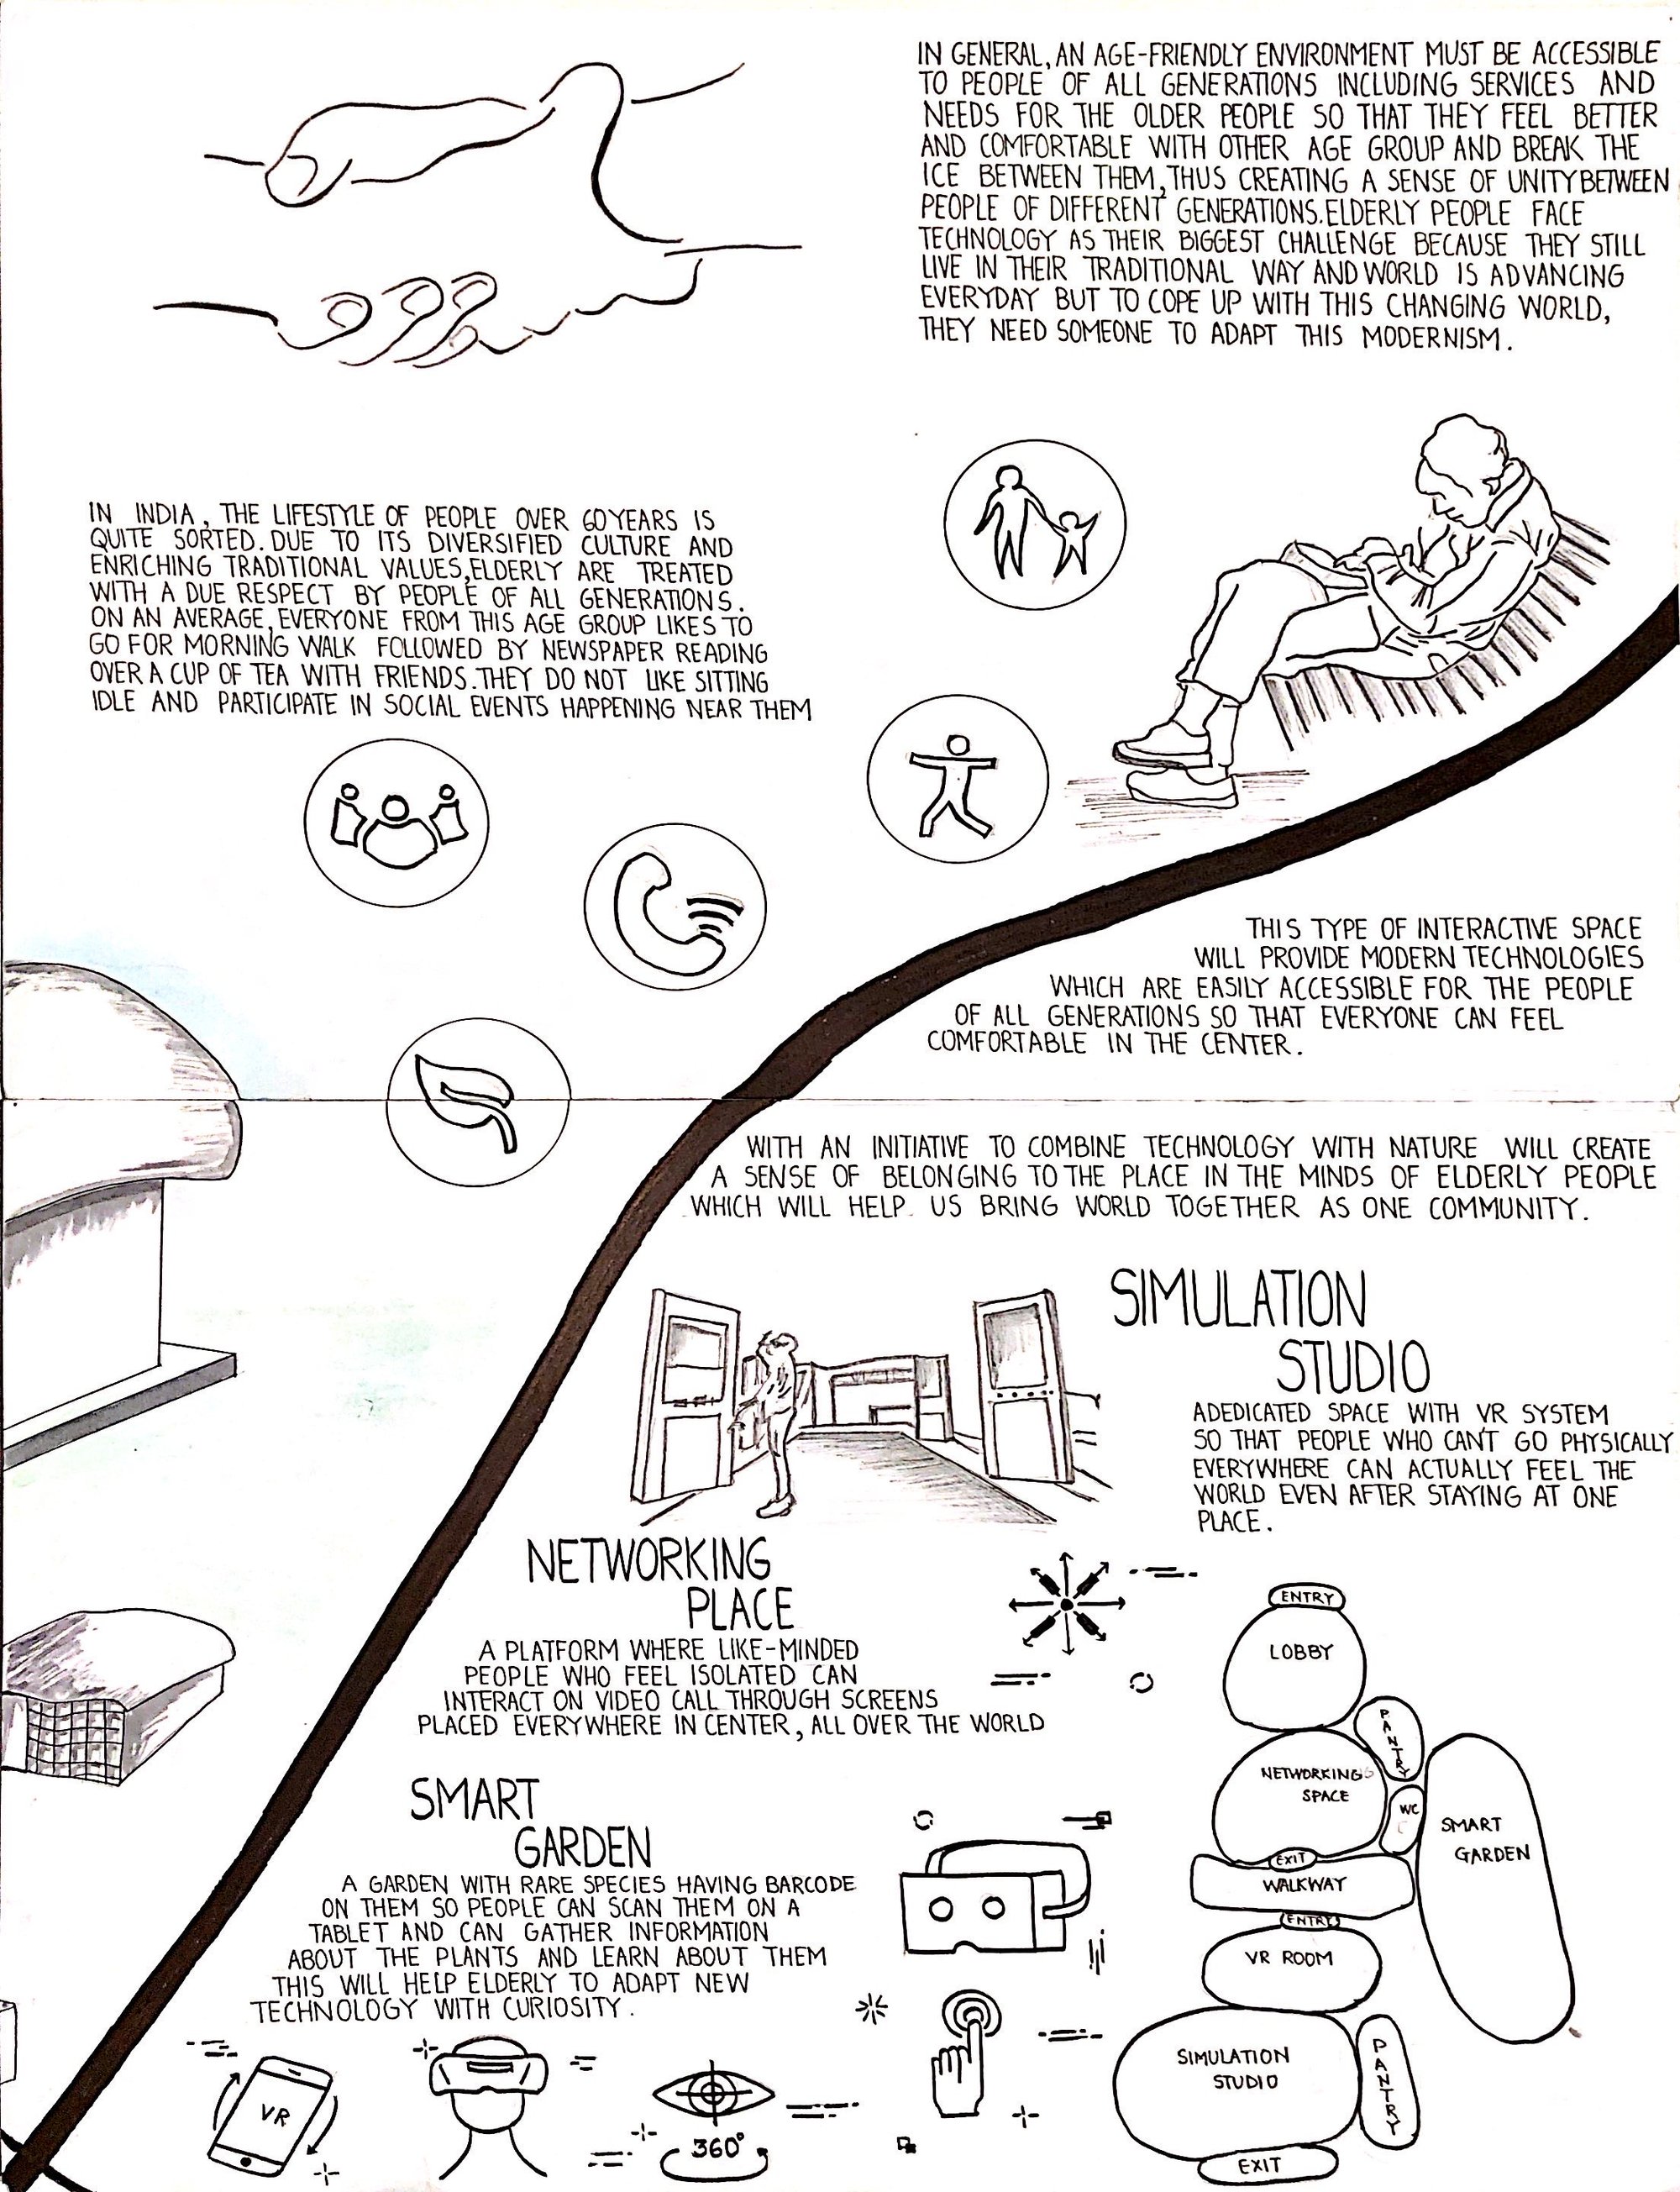 IN GENERAL, AN AGE-FRIENDLY ENVIRONMENT MUST BE ACCESSIBLE
TO PEOPLE OF ALL GENERATIONS INCLUDING SERVICES AND
NEEDS FOR THE OLDER PEOPLE SO THAT THEY FEEL BETTER
AND COMFORTABLE WITH OTHER AGE GROUP AND BREAK THE
ICE BETWEEN THEM, THUS CREATING A SENSE OF UNITY BETWEEN
PEOPLE OF DIFFERENT GENERATIONS. ELDERLY PEOPLE FACE
TECHNOLOGY AS THEIR BIGGEST CHALLENGE BECAUSE THEY STILL
LIVE IN THEIR TRADITIONAL WAY AND WORLD IS ADVANCING
EVERYDAY BUT TO COPE UP WITH THIS CHANGING WORLD,
THEY NEED SOMEONE TO ADAPT THIS MODERNISM.
IN INDIA, THE LIFESTYLE OF PEOPLE OVER 60 YEARS IS
QUITE SORTED. DUE TO ITS DIVERSIFIED CULTURE AND
ENRICHING TRADITIONAL VALUES, ELDERLY ARE TREATED
WITH A DUE RESPECT BY PEOPLE OF ALL GENERATIONS.
ON AN AVERAGE, EVERYONE FROM THIS AGE GROUP LIKES TO
GO FOR MORNING WALK FOLLOWED BY NEWSPAPER READING
OVER A CUP OF TEA WITH FRIENDS. THEY DO NOT LIKE SITTING
IDLE AND PARTICIPATE IN SOCIAL EVENTS HAPPENING NEAR THEM
THIS TYPE OF INTERACTIVE SPACE
WILL PROVIDE MODERN TECHNOLOGIES
WHICH ARE EASILY ACCESSIBLE FOR THE PEOPLE
OF ALL GENERATIONS SO THAT EVERYONE CAN FEEL
COMFORTABLE IN THE CENTER.
WITH AN INITIATIVE TO COMBINE TECHNOLOGY WITH NATURE WILL CREATE
A SENSE OF BELONGING TO THE PLACE IN THE MINDS OF ELDERLY PEOPLE
WHICH WILL HELP US BRING WORLD TOGETHER AS ONE COMMUNITY.
SIMULATION
STUDIO
ADEDICATED SPACE WITH VR SYSTEM
SO THAT PEOPLE WHO CAN'T GO PHYSICALLY
EVERYWHERE CAN ACTUALLY FEEL THE
WORLD EVEN AFTER STAYING AT ONE
PLACE.
NETWORKING
PLACE
A PLATFORM WHERE LIKE-MINDED
PEOPLE WHO FEEL ISOLATED CAN
INTERACT ON VIDEO CALL THROUGH SCREENS
PLACED EVERYWHERE IN CENTER, ALL OVER THE WORLD
SMART
GARDEN
A GARDEN WITH RARE SPECIES HAVING BARCODE
ON THEM SO PEOPLE CAN SCAN THEM ON A
TABLET AND CAN GATHER INFORMATION
ABOUT THE PLANTS AND LEARN ABOUT THEM
THIS WILL HELP ELDERLY TO ADAPT NEW
TECHNOLOGY WITH CURIOSITY.
VR
360°
ENTRY
LOBBY
PANTRY
NETWORKING
SPACE
WC
SMART
GARDEN
EXIT
WALKWAY
ENTRY
VR ROOM
SIMULATION
STUDIO
PANTRY
EXIT